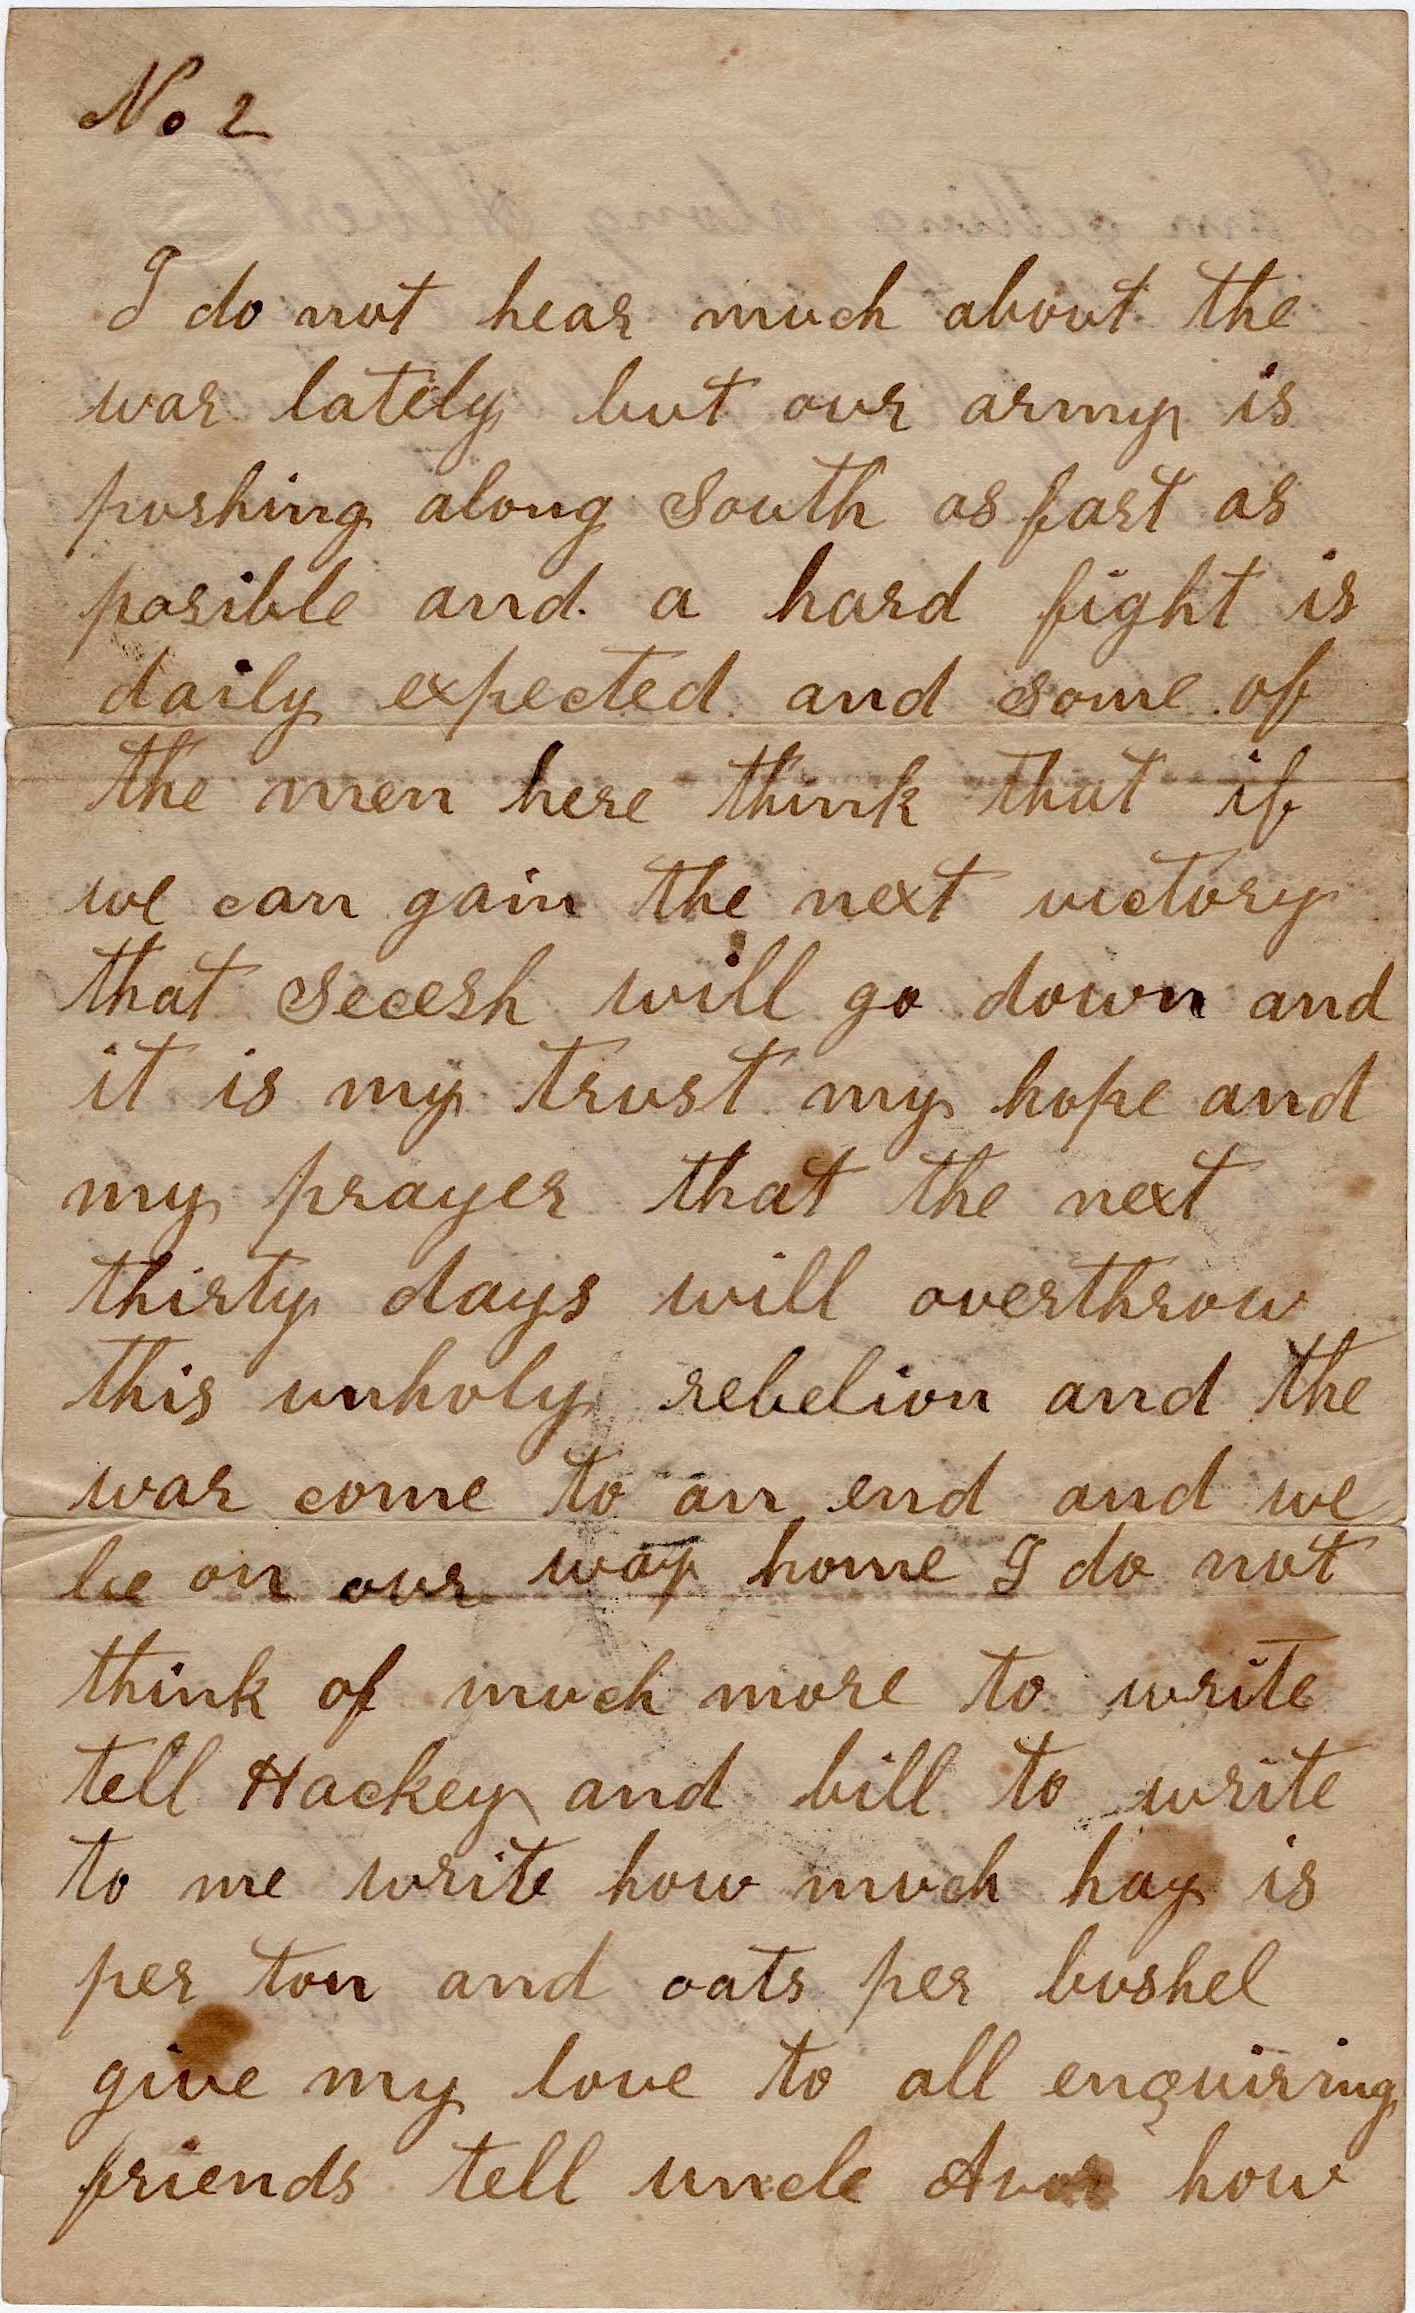 No 2
I do not hear much about the
war lately but our army is
pushing along South as fast as
posible and a hard fight is
daily expected and some of
the men here think that if
we can gain the next victory
that Secesh will go down and
it is my trust my hope and
my prayer that the next
thirty days will overthrow
this unholy rebelion and the
war come to an end and we
be on our way home I do not
think of much more to write
tell Hackey and bill to write
to me write how much hay is
per ton and oats per bushel
give my love to all enquiring
friends tell uncle how